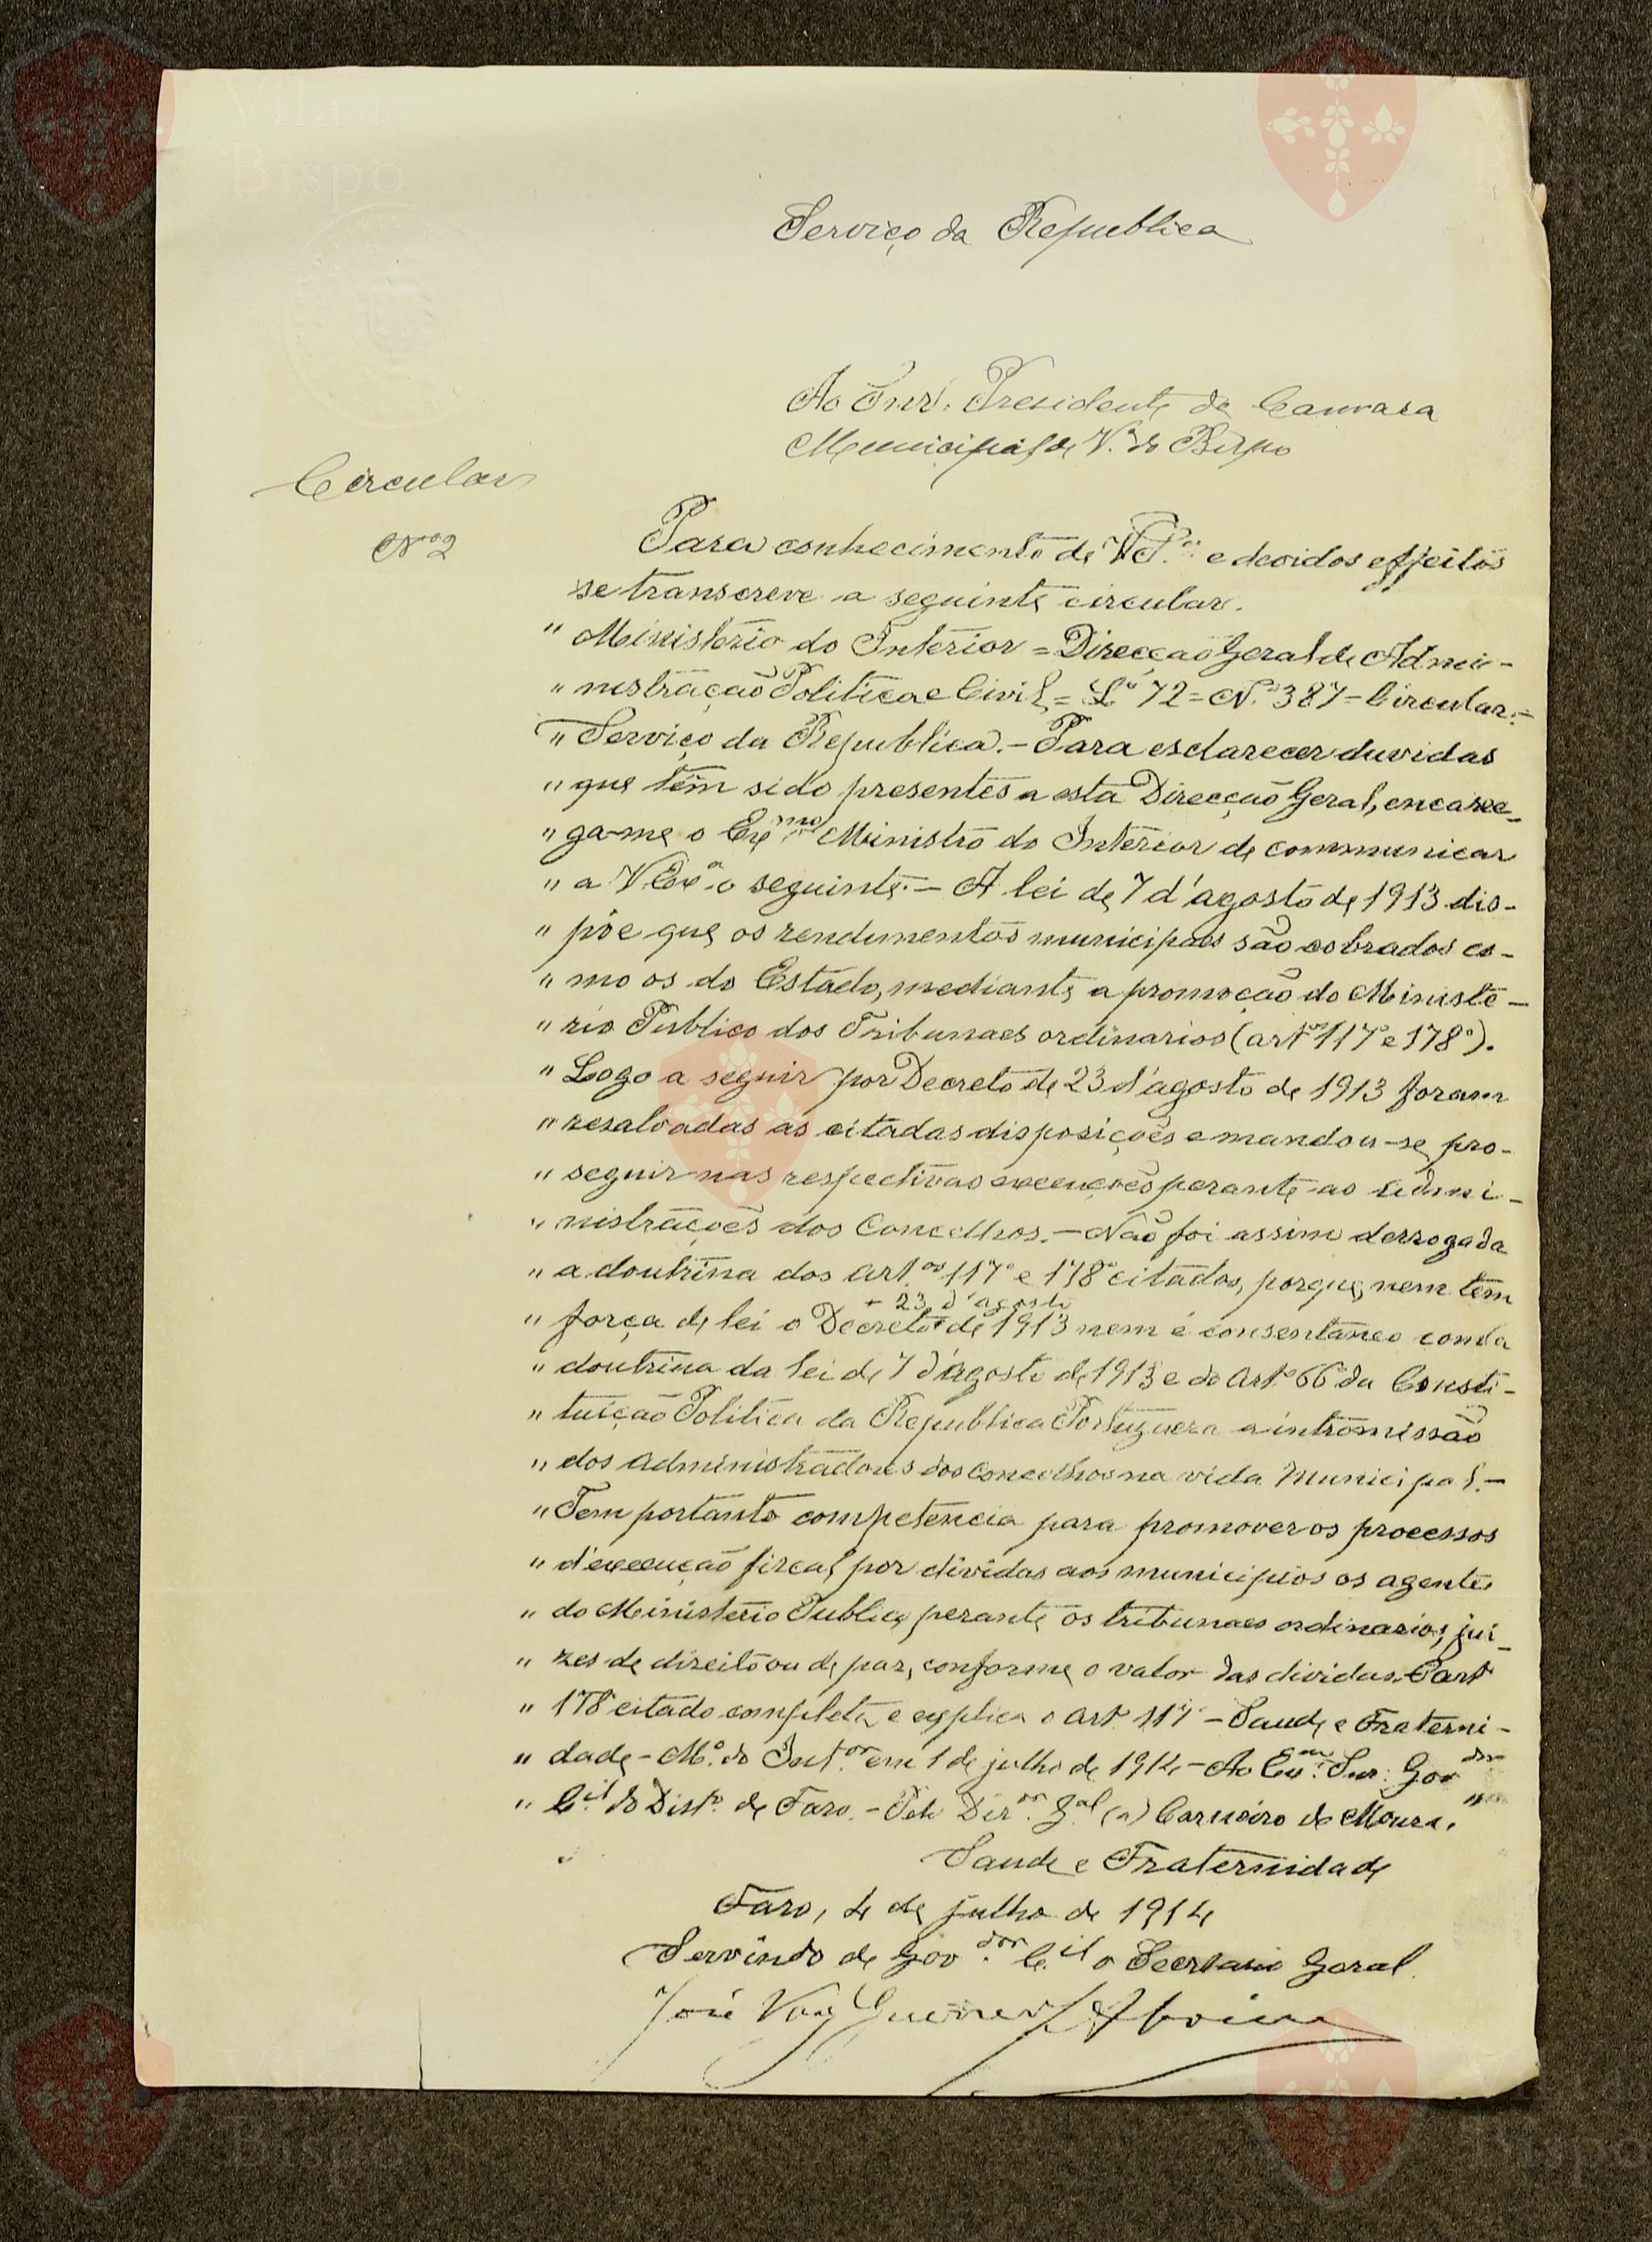 Serviço da Republica
Ao Snr. Presidente da Camara
Municipal de V.ª do Bispo
Circular
Nº 2
Para conhecimento de V. Ex.ª e devidos effeitos
se transcreve a seguinte circular.
" Ministerio do Interior = Direcção Geral de Admi-
" nistração Politica e Civil = L.º 72 = N.º 387 = Circular. =
" Serviço da Republica. - Para esclarecer duvidas
" que têm sido presentes a esta Direcção Geral, encarre-
" ga-me o Exmo Ministro do Interior de communicar
" a V. Ex.ª o seguinte. - A lei de 7 d'agosto de 1913 dis-
" põe que os rendimentos municipaes são cobrados co-
" mo os do Estado, mediante a promoção do Ministe-
" rio Publico dos Tribunaes ordinarios (artos 117º e 178º).
" Logo a seguir por Decreto de 23 d'agosto de 1913 foram
" resalvadas as citadas disposições e mandou-se pro-
" seguir nas respectivas execuções perante as admi-
" nistrações dos Concelhos. - Não foi assim derrogada
" a doutrina dos art.os 117º e 178º citados, porque, nem têm
+ 23 d'agosto
" força de lei o Decreto + de 1913 nem é consentaneo com a
" doutrina da lei de 7 d'agosto de 1913 e do Artº 66 da Consti-
" tuição Politica da Republica Portugueza a intromissão
" dos administradores dos concelhos na vida Municipal. -
" Tem portanto competencia para promover os processos
" d'execução fiscal por dividas aos municipios os agentes
" do Ministerio Publico, perante os tribunaes ordinarios, jui-
" zes de direito ou de paz, conforme o valor das dividas. O art
" 178 citado completa e explica o artº 117 - Saude e Fraterni-
" dade - M.º do Int.or em 1 de julho de 1914 - Ao Exmo Snr. Govdor
" C.il do Dist.º de Faro. - Pelo Dir.or G.al (a) Carneiro de Moura. "
Saude e Fraternidade
Faro, 4 de julho de 1914
Servindo de Gov.dor C.il o Secretario Geral
José Vaz Guerreiro d'Aboim
Vila do
Bispo
Vila do
Bispo
Bispo